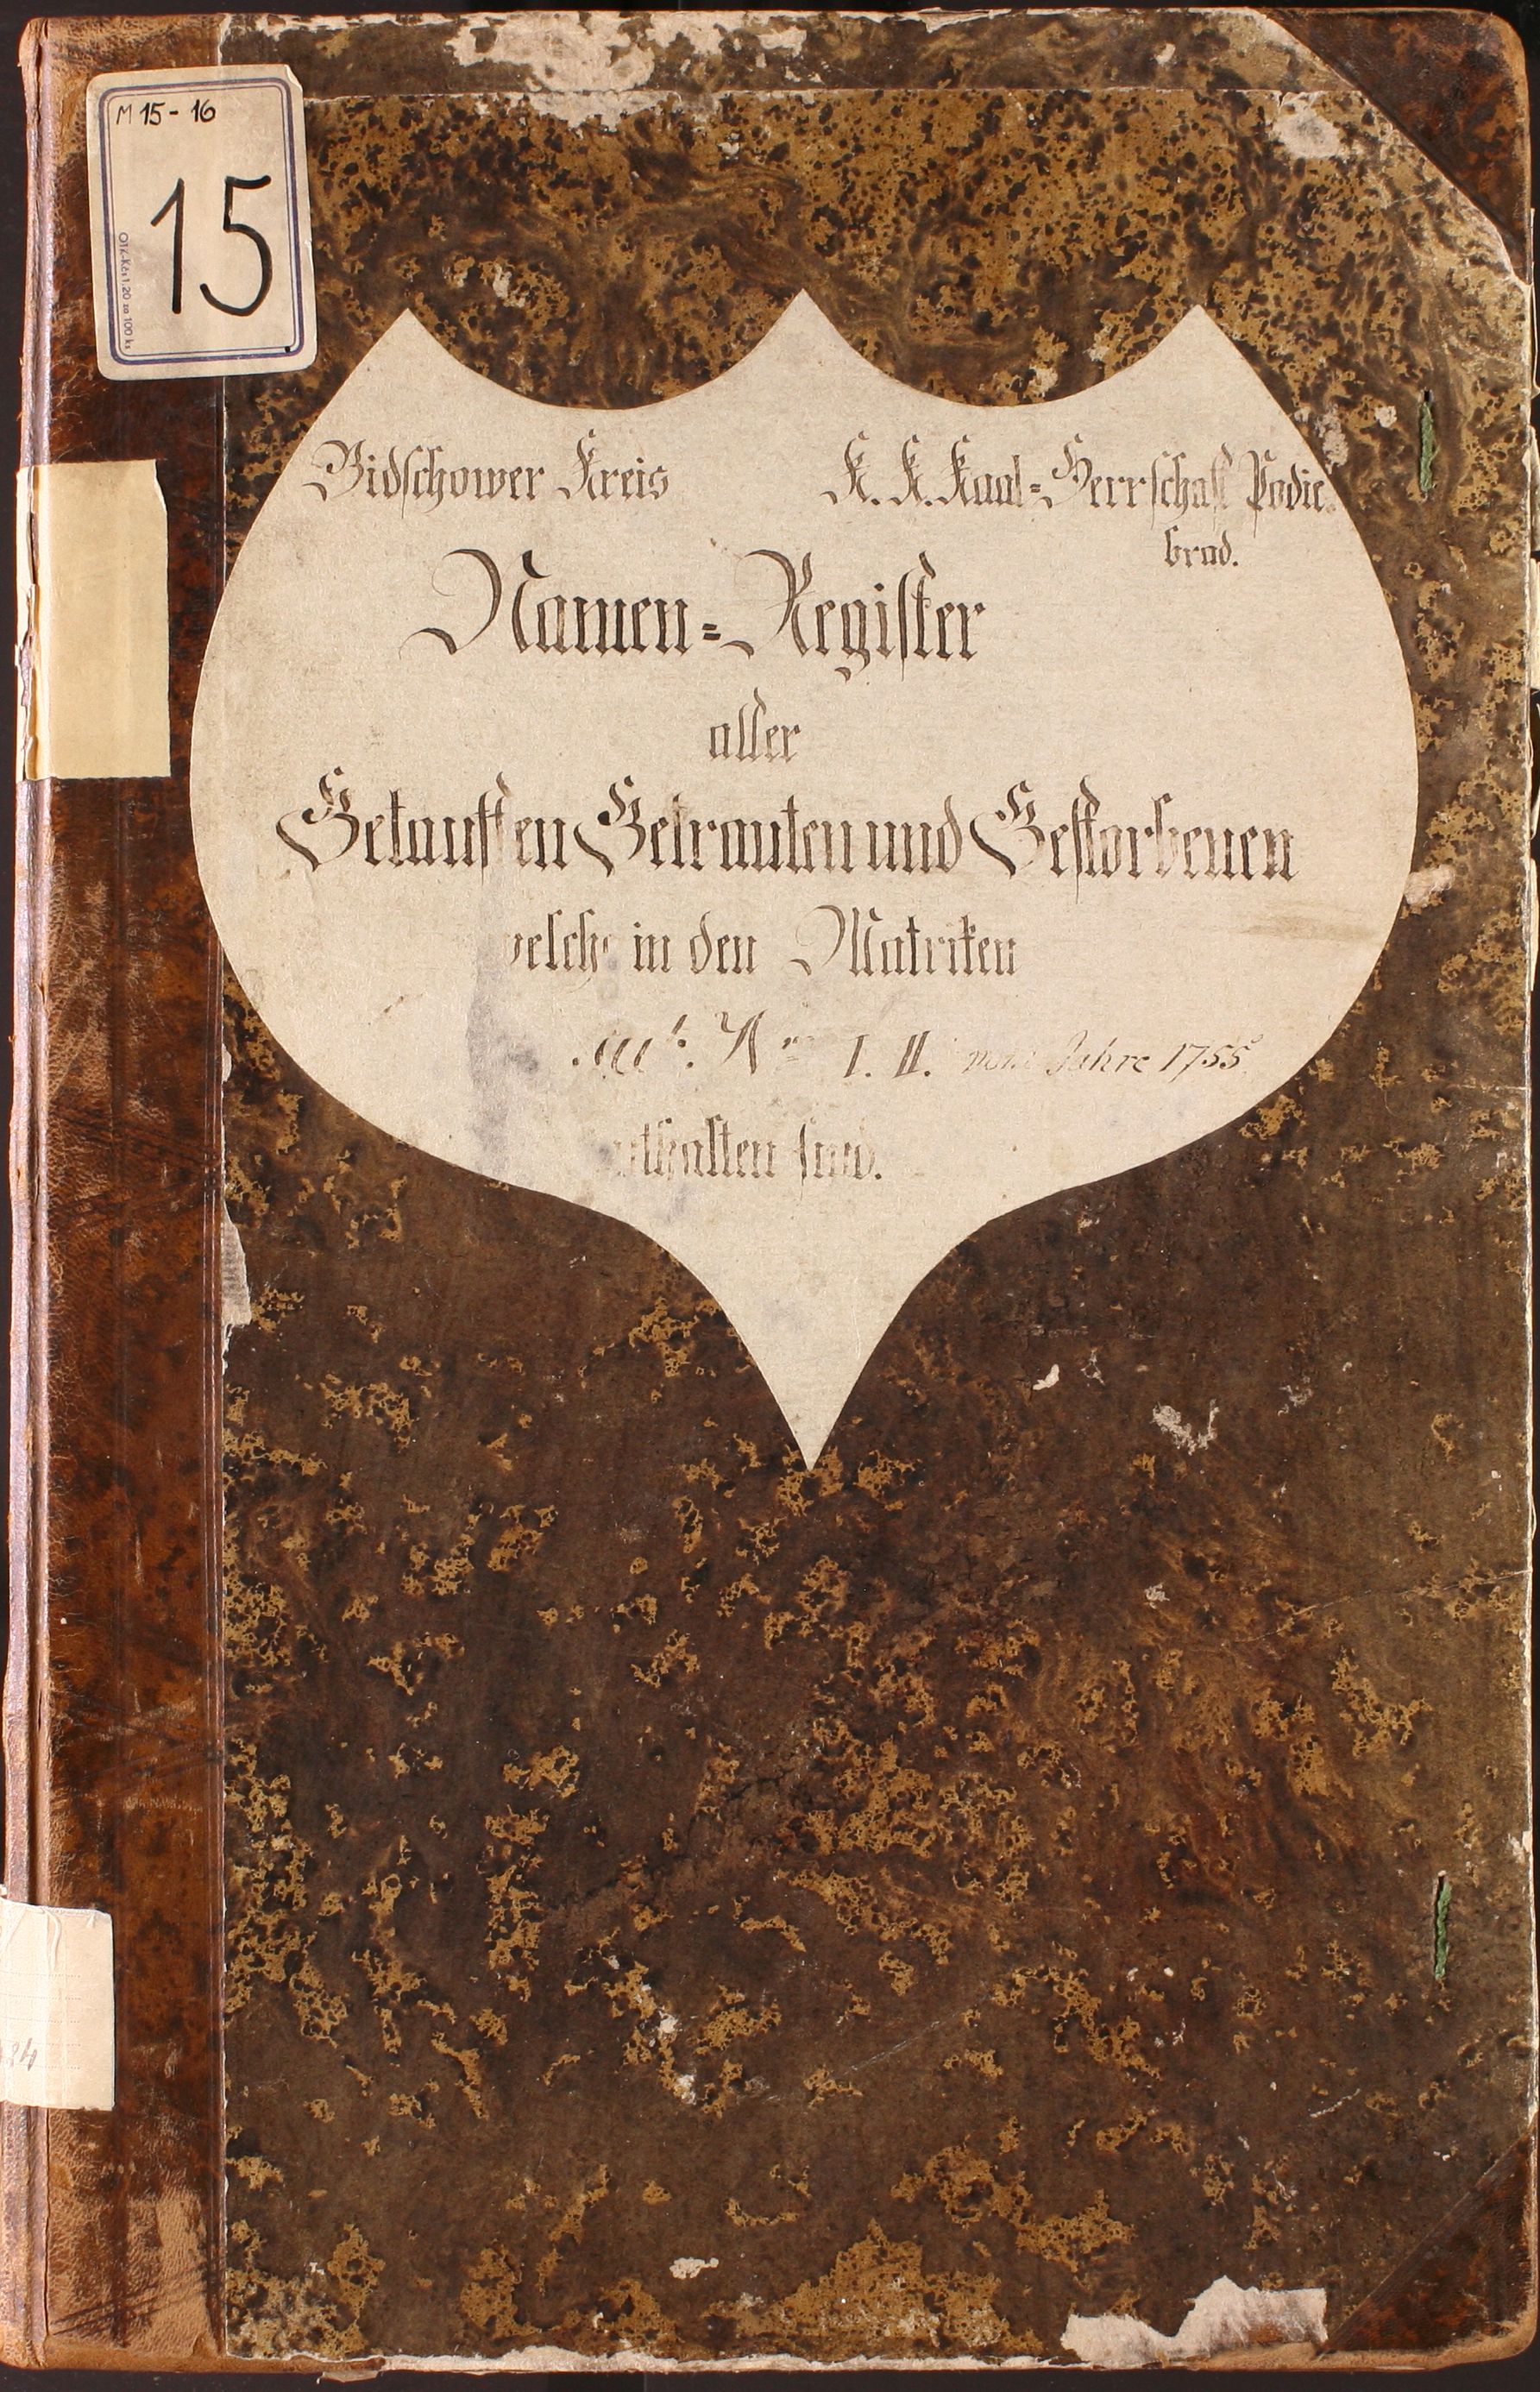 M 15 - 16
15
OTK-Kčs 1.20 za 100 ks
Bidschower Kreis
K. K. Kaal=Herrschaft Podie=
brad.
Namen=Register
aller
Getauften Getrauten und Gestorbenen
welche in den Matriken
Nro I. II. vom Jahre 1755
enthalten sind.
24